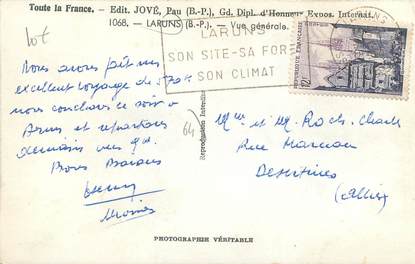 Toute la France. - Edit. JOVÉ, Pau (B.-P.), Gd. Dipl. d'Honneur Expos. Internat.
1068. - LARUNS (B.-P.). - Vue générale.
LARUNS
SON SITE-SA FORÊT
SON CLIMAT
REPUBLIQUE FRANÇAISE
12
Nous avons fait un
excellent voyage
nous couchons ce soir à
et repartons
demain
Bons Baisers
64
Reproduction Interdite
Mme et Mr Roch
Rue
Désertines
(Allier)
PHOTOGRAPHIE VÉRITABLE